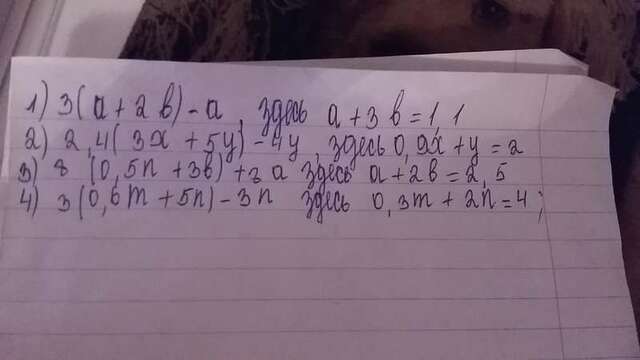 1) 3(a+2в)-a здесь a+3в=1,1
2) 2,4(3x+5y)-4y здесь 0,9x+y=2
3) 8(0,5n+3в)+2a здесь a+2в=2,5
4) 3(0,6m+5n)-3n здесь 0,3m+2n=4,